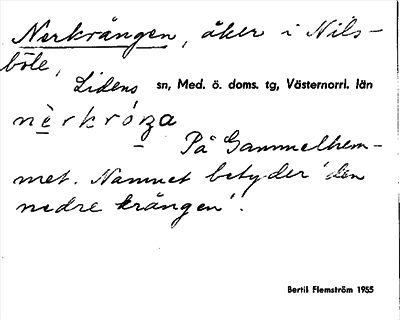 Nerkrången, åker i Nils-
böle,
Lidens sn, Med. ö. doms. tg, Västernorrl. län
nèrkróŋa
På Gammelhem-
met. Namnet betyder 'den
nedre krången'.
Bertil Flemström 1955